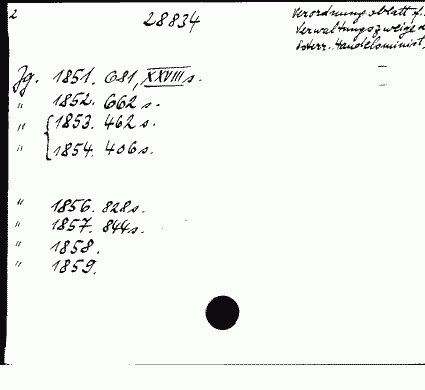 2
28834
Verordnungsblatt f.
Verwaltungszweige d
österr. Handelsminist.
Jg. 1851. 681, XXVIII s.
" 1852. 662 s.
" 1853. 462 s.
" 1854. 406 s.
" 1856. 828 s.
" 1857. 844 s.
" 1858.
" 1859.